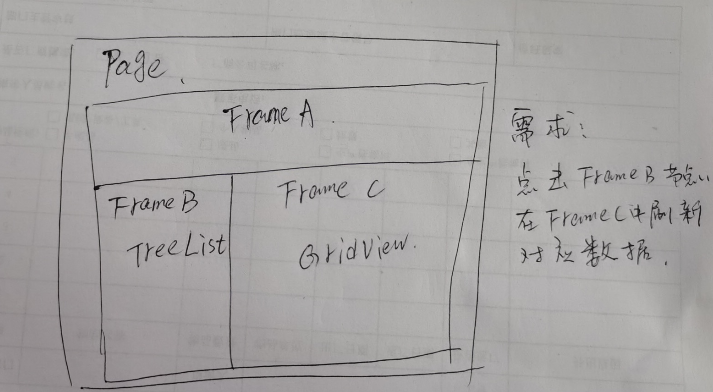 Page.
Frame A.
Frame B
TreeList
Frame C
GridView.
需求:
点击FrameB节点,
在FrameC中刷新
对应数据.